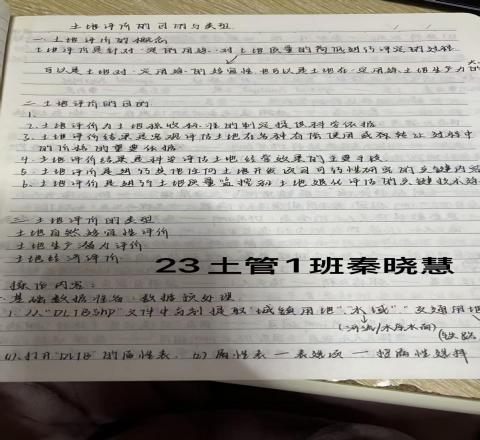 土地评价的目的与类型
一. 土地评价的概念
土地评价是针对一定的用途,对土地质量的高低进行评定的过程
可以是土地对一定用途的适宜性,也可以是土地在一定用途土地生产力的大
二. 土地评价的目的
1.
2. 土地评价为土地税收标准的制定提供科学依据
3. 土地评价结果是客观评估土地在各种有偿使用或称转让过程中
的价格的重要依据
4. 土地评价结果是科学评估土地经营效果的主要手段
5. 土地评价是进行其他任何土地开发项目可行性研究的关键内容
6. 土地评价是进行土地质量监控和土地退化评估的关键技术
三. 土地评价的类型
土地自然适宜性评价
土地生产潜力评价
土地经济评价
23土管1班秦晓慧
操作内容:
一. 基础数据准备、数据预处理
1. 从"DLTB.shp"文件中分别提取"城镇用地"、水域""交通用地
(河流/水库水面) (铁路
(1). 打开"DLTB"的属性表. (2) 属性表 — 表选项 — 按属性选择